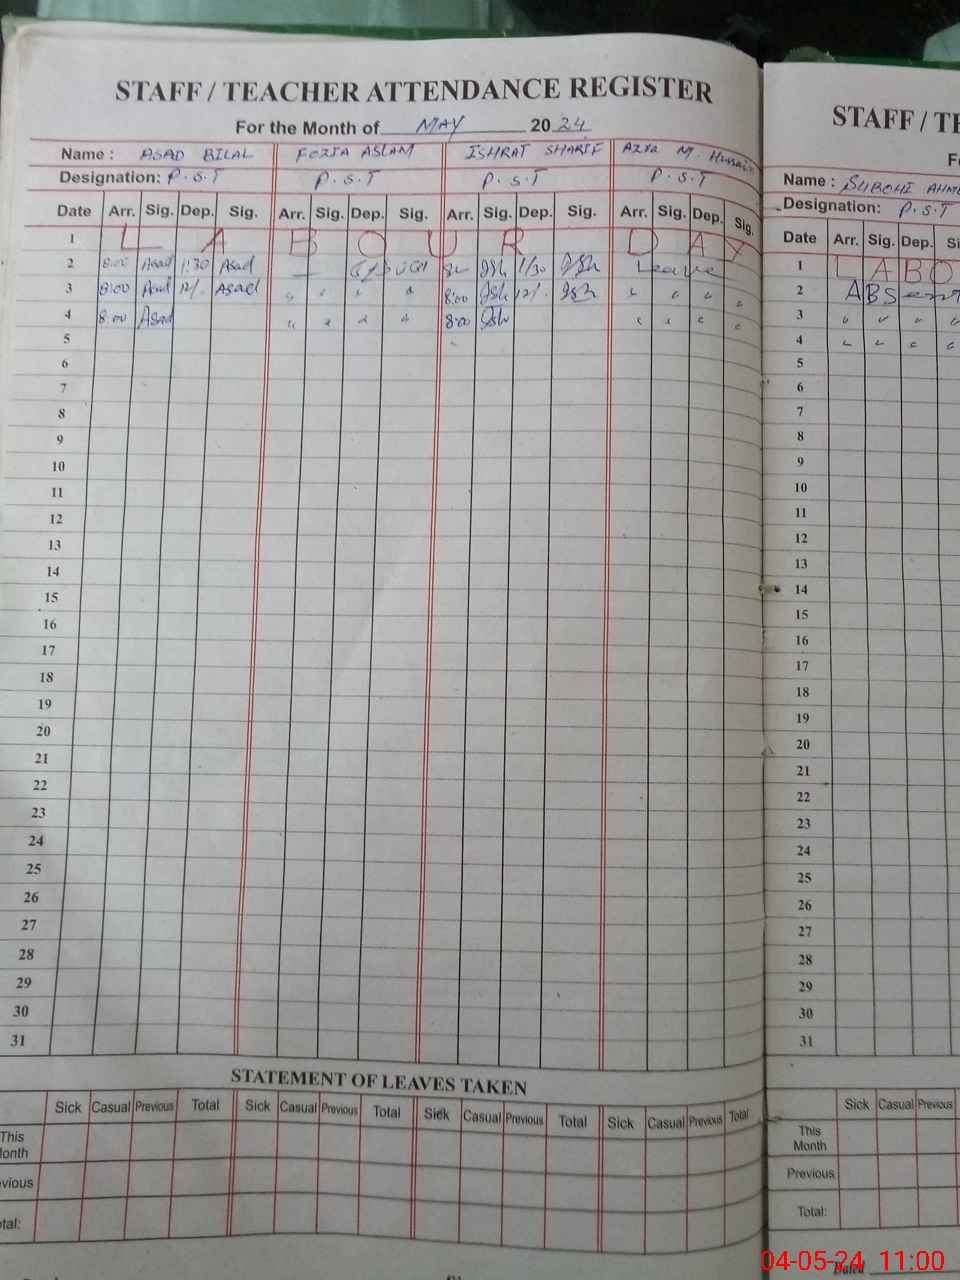 STAFF / TEACHER ATTENDANCE REGISTER
For the Month of MAY 2024
Name : ASAD BILAL FOZIA ASLAM ISHRAT SHARIF AZRA M. Hussain
Designation: P.S.T P.S.T P.S.T P.S.T
Date Arr. Sig. Dep. Sig. Arr. Sig. Dep. Sig. Arr. Sig. Dep. Sig. Arr. Sig. Dep. Sig.
1 L A B O U R D A Y
2 8:00 Asad 1:30 Asad Ish 1/30 Ish Leave
3 8:00 Asad 12/. Asad " " " " 8:00 Ish 12/. Ish " " " "
4 8:00 Asad " " " " 8:00 Ish " " " "
5
6
7
8
9
10
11
12
13
14
15
16
17
18
19
20
21
22
23
24
25
26
27
28
29
30
31
STATEMENT OF LEAVES TAKEN
Sick Casual Previous Total Sick Casual Previous Total Sick Casual Previous Total Sick Casual Previous Total
This
onth
vious
tal:
STAFF / TE
F
Name : SUBOHI AHME
Designation: P.S.T
Date Arr. Sig. Dep. Si
1 L A B O
2 ABSent
3 " " " "
4 " " " "
5
6
7
8
9
10
11
12
13
14
15
16
17
18
19
20
21
22
23
24
25
26
27
28
29
30
31
Sick Casual Previous
This
Month
Previous
Total:
Dated
04-05-24 11:00